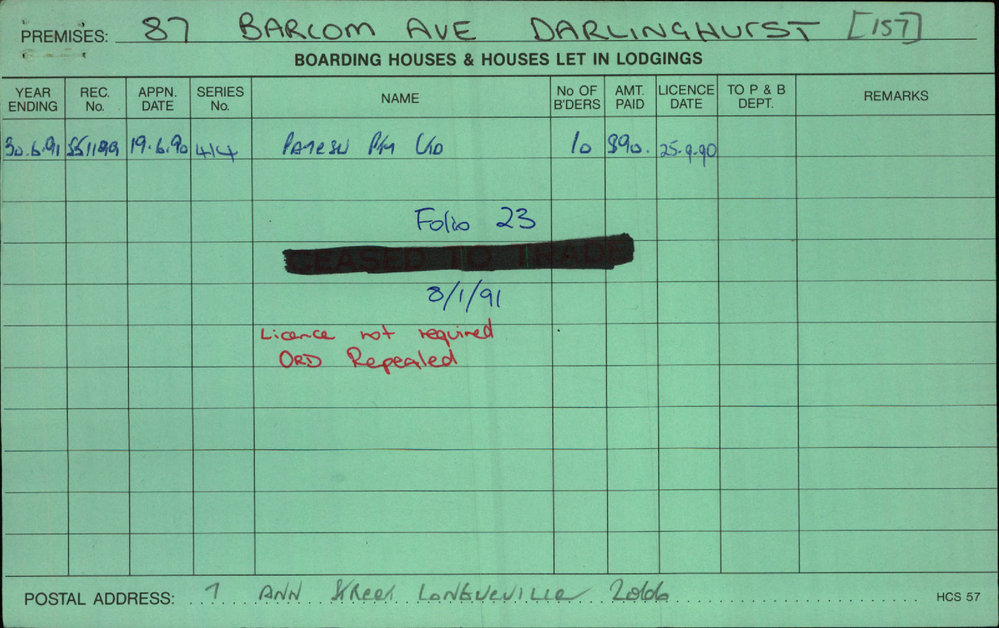 PREMISES: 87 BARCOM AVE DARLINGHURST [157]
BOARDING HOUSES & HOUSES LET IN LODGINGS
YEAR ENDING REC. No. APPN. DATE SERIES No. NAME No OF B'DERS AMT. PAID LICENCE DATE TO P & B DEPT. REMARKS
30.6.91 19.6.90 414 P/M Ltd 10 $90. 25.9.90
Folio 23
CEASED TO TRADE
8/1/91
Licence not required
ORD Repealed
POSTAL ADDRESS: 7 ANN Street LONGUEVILLE 2066 HCS 57